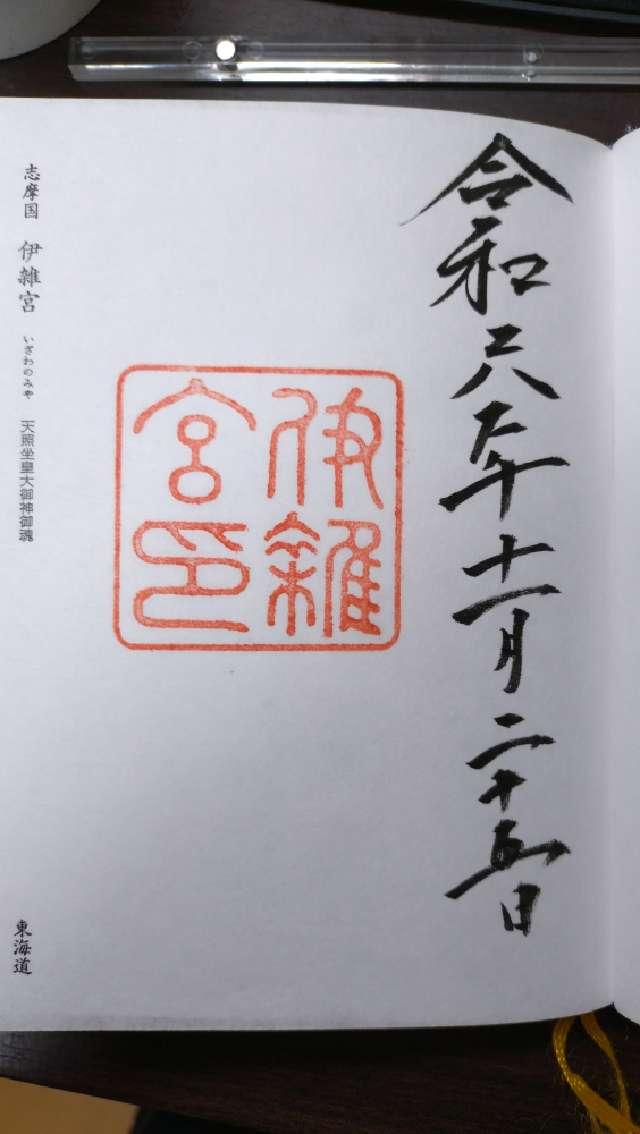 令和六年十一月二十五日
伊雑
宮印
志摩国 伊雑宮 いざわのみや 天照坐皇大御神御魂
東海道